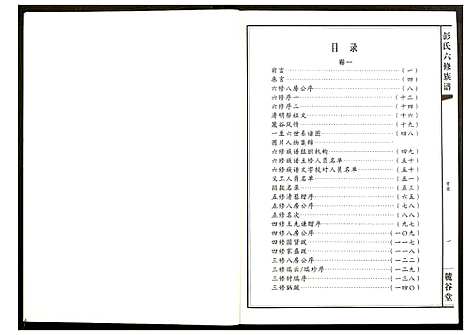 彭氏六修族谱
目录
卷一
前言 (一)
序言 (四)
六修八房公序 (八)
六修序一 (十二)
六修序二 (十四)
清明祭祖文 (十六)
箴谷风情 (十九)
一至六世系谱图 (四八)
图片人物集锦
六修族谱组织机构 (四九)
六修族谱主修人员名单 (五十)
六修族谱文字校对人员名单 (五十)
义工人员名单 (五一)
捐款名录 (五三)
五修清基赠序 (六五)
五修八房公序 (七八)
五修名次 (八八)
四修王先谦赠序 (九七)
四修八房公序 (一〇九)
四修国贤跋 (一一七)
四修家嘉跋 (一一八)
三修八房公序 (一二二)
三修瑞云/瑞珍序 (一二九)
三修钟瑞序 (一三一)
三修韵跋 (一四〇)
一
箴谷堂